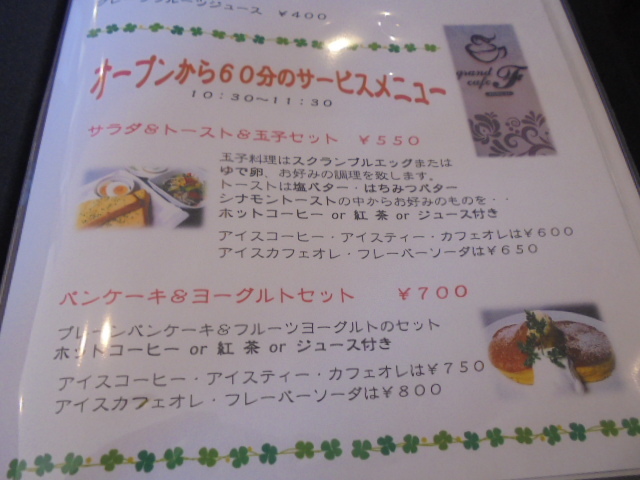 フルーツジュース ￥400
オープンから６０分のサービスメニュー
１０：３０～１１：３０
grand
cafe F
サラダ＆トースト＆玉子セット ￥５５０
玉子料理はスクランブルエッグまたは
ゆで卵、お好みの調理を致します。
トーストは塩バター・はちみつバター
シナモントーストの中からお好みのものを・・
ホットコーヒー or 紅 茶 or ジュース付き
アイスコーヒー・アイスティー・カフェオレは￥６００
アイスカフェオレ・フレーバーソーダは￥６５０
パンケーキ＆ヨーグルトセット ￥７００
プレーンパンケーキ＆フルーツヨーグルトのセット
ホットコーヒー or 紅 茶 or ジュース付き
アイスコーヒー・アイスティー・カフェオレは￥７５０
アイスカフェオレ・フレーバーソーダは￥８００